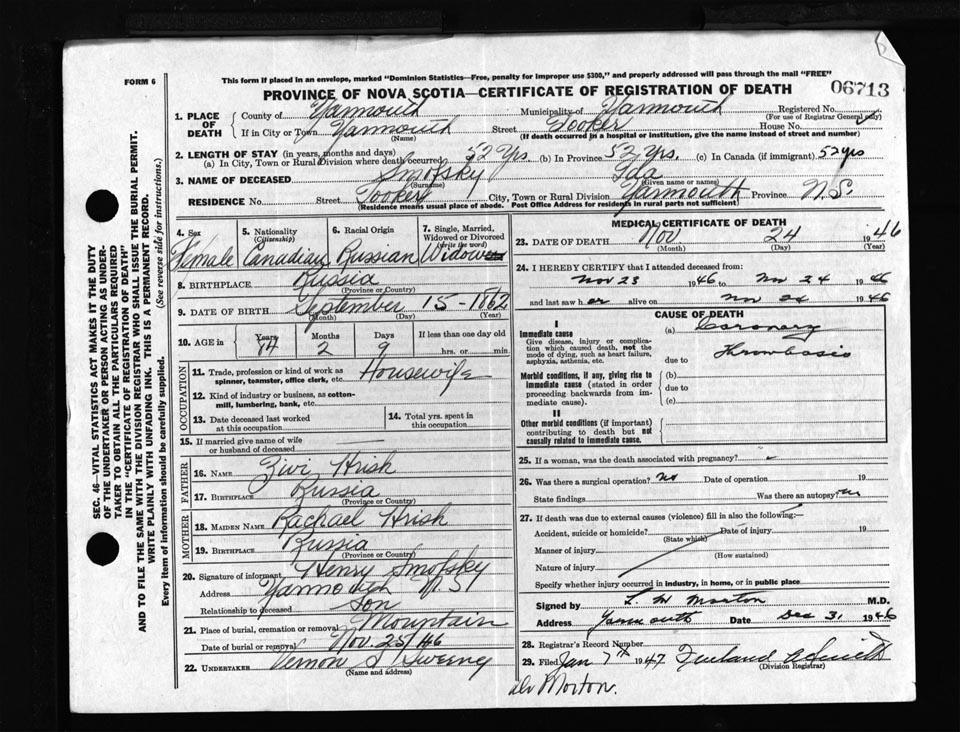 FORM 6
This form if placed in an envelope, marked "Dominion Statistics—Free, penalty for improper use $300," and properly addressed will pass through the mail "FREE"
PROVINCE OF NOVA SCOTIA—CERTIFICATE OF REGISTRATION OF DEATH
06713
1. PLACE OF DEATH
County of Yarmouth Municipality of Yarmouth Registered No.
(For use of Registrar General only)
If in City or Town Yarmouth Street Tooker House No.
(Name) (If death occurred in a hospital or institution, give the name instead of street and number)
2. LENGTH OF STAY (in years, months and days)
(a) In City, Town or Rural Division where death occurred 52 Yrs. (b) In Province 52 Yrs. (c) In Canada (if immigrant) 52 yrs
3. NAME OF DECEASED Smofsky Ida
(Surname) (Given name or names)
RESIDENCE No. Street Tooker City, Town or Rural Division Yarmouth Province N.S.
(Residence means usual place of abode. Post Office Address for residents in rural parts is not sufficient)
4. Sex 5. Nationality (Citizenship) 6. Racial Origin 7. Single, Married, Widowed or Divorced (write the word)
Female Canadian Russian Widow
8. BIRTHPLACE Russia
(Province or Country)
9. DATE OF BIRTH September 15 - 1862
(Month) (Day) (Year)
10. AGE in Years Months Days If less than one day old
84 2 9 hrs. or min.
OCCUPATION
11. Trade, profession or kind of work as spinner, teamster, office clerk, etc. Housewife
12. Kind of industry or business, as cotton-mill, lumbering, bank, etc.
13. Date deceased last worked at this occupation
14. Total yrs. spent in this occupation
15. If married give name of wife or husband of deceased
FATHER
16. NAME Zivi Hrish
17. BIRTHPLACE Russia
(Province or Country)
MOTHER
18. MAIDEN NAME Rachael Hrish
19. BIRTHPLACE Russia
(Province or Country)
20. Signature of informant Henry Smofsky
Address Yarmouth N.S.
Relationship to deceased Son
21. Place of burial, cremation or removal Mountain
Date of burial or removal Nov. 25/46
22. UNDERTAKER Vernon S Sweeny
(Name and address)
MEDICAL CERTIFICATE OF DEATH
23. DATE OF DEATH Nov. 24 1946
(Month) (Day) (Year)
24. I HEREBY CERTIFY that I attended deceased from:
Nov 23 1946 to Nov 24 1946
and last saw her alive on Nov 24 1946
CAUSE OF DEATH
I
Immediate cause (a) Coronary
Give disease, injury or complication which caused death, not the mode of dying, such as heart failure, asphyxia, asthenia, etc.
due to Thrombosis
Morbid conditions, if any, giving rise to immediate cause (stated in order proceeding backwards from immediate cause).
(b)
due to
(c)
II
Other morbid conditions (if important) contributing to death but not causally related to immediate cause.
25. If a woman, was the death associated with pregnancy?
26. Was there a surgical operation? no Date of operation 19
State findings Was there an autopsy? no
27. If death was due to external causes (violence) fill in also the following:—
Accident, suicide or homicide? Date of injury 19
(State which)
Manner of injury
(How sustained)
Nature of injury
Specify whether injury occurred in industry, in home, or in public place
Signed by L. M Morton M.D.
Address Yarmouth Date Dec 31, 1946
28. Registrar's Record Number
29. Filed Jan 7th 1947
(Division Registrar)
Dr Morton.
SEC. 46—VITAL STATISTICS ACT MAKES IT THE DUTY
OF THE UNDERTAKER OR PERSON ACTING AS UNDER-
TAKER TO OBTAIN ALL THE PARTICULARS REQUIRED
IN THE "CERTIFICATE OF REGISTRATION OF DEATH"
AND TO FILE THE SAME WITH THE DIVISION REGISTRAR WHO SHALL ISSUE THE BURIAL PERMIT.
WRITE PLAINLY WITH UNFADING INK. THIS IS A PERMANENT RECORD.
Every item of information should be carefully supplied. (See reverse side for instructions.)